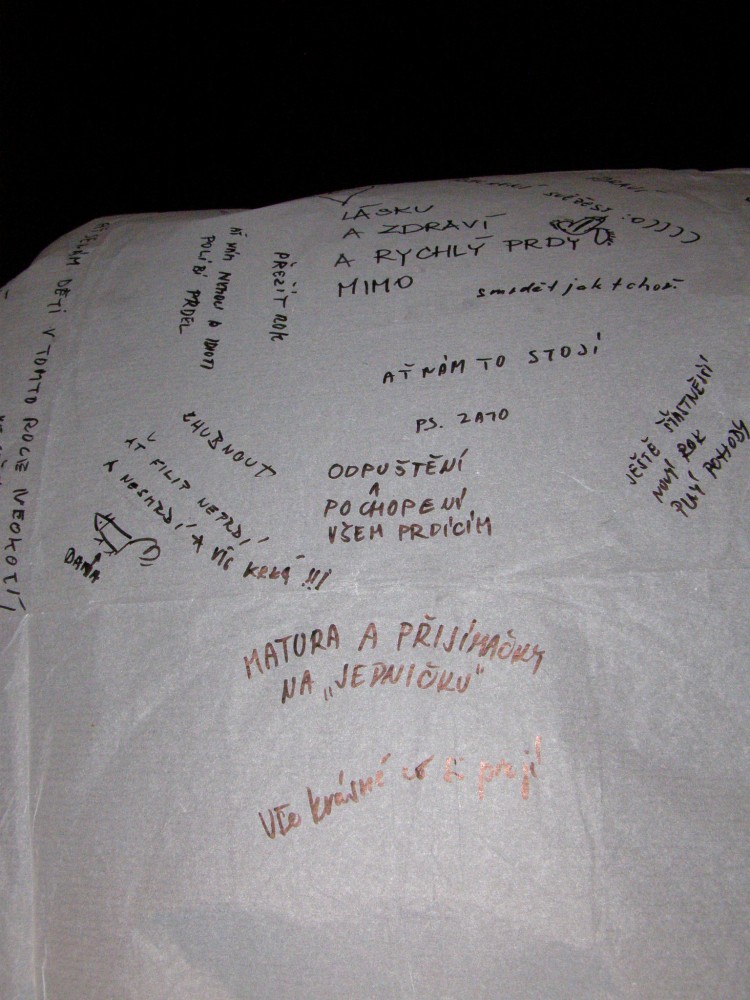 ZDRAVÍ
LÁSKU
A ZDRAVÍ
A RYCHLÝ PRDY
MIMO
smrdět jak tchoř.
PŘEŽÍT ROK
AŤ VÁM NEMOC A IDIOTI
POLÍBÍ PRDEL
DĚTI V TOMTO ROCE NEOKOTÍ,
AŤ NÁM TO STOJÍ
PS. ZATO
ODPUŠTĚNÍ
A
POCHOPENÍ
VŠEM PRDÍCÍM
JEŠTĚ ŠŤASTNĚJŠÍ
NOVÝ ROK
PLNÝ POHODY
ZHUBNOUT
AŤ FILIP NEPRDÍ
A NESMRDÍ A VÍC KRKÁ !!!
DANA
MATURA A PŘIJÍMAČKY
NA „JEDNIČKU"
Vše krásné co si přejí